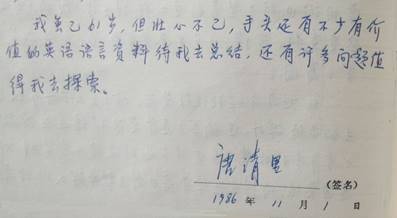 我虽已61岁，但壮心不已，手头还有不少有价
值的英语语言资料待我去总结，还有许多问题值
得我去探索。
唐清里
（签名）
1986年11月1日